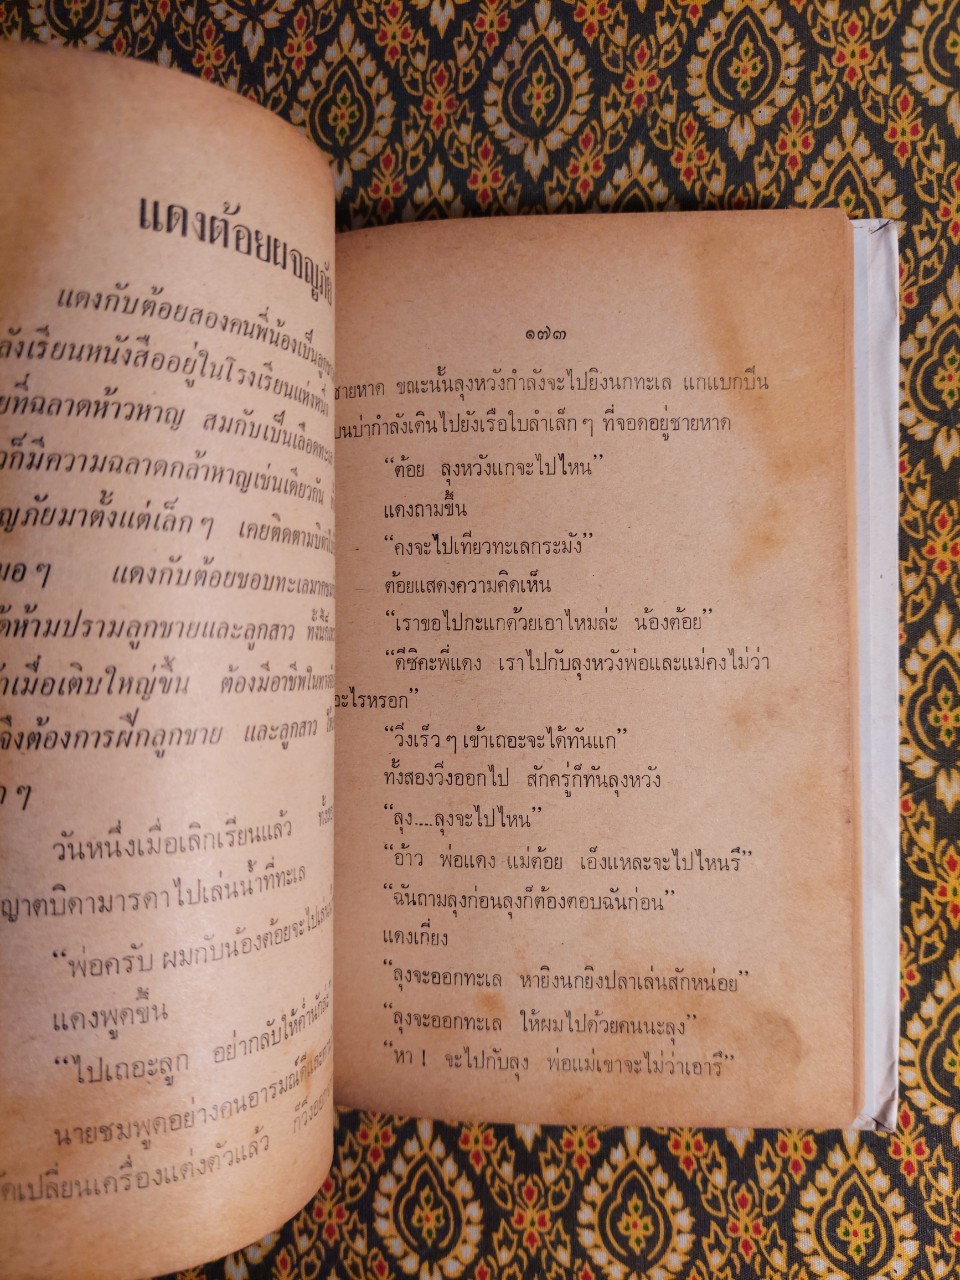 แดงต้อยผจญภัย
แดงกับต้อยสองคนพี่น้องเป็นลูก
ลังเรียนหนังสืออยู่ในโรงเรียนแห่งหนึ่
ยที่ฉลาดห้าวหาญ สมกับเป็นเลือดทะเล
วก็มีความฉลาดกล้าหาญเช่นเดียวกัน
ญภัยมาตั้งแต่เล็กๆ เคยติดตามบิดาไป
มอๆ แดงกับต้อยชอบทะเลมาก
ด้ห้ามปรามลูกชายและลูกสาว ทั้งนี้
ว่าเมื่อเติบใหญ่ขึ้น ต้องมีอาชีพในทาง
จึงต้องการฝึกลูกชาย และลูกสาว
ก ๆ
วันหนึ่งเมื่อเลิกเรียนแล้ว ทั้งสอง
ญาตบิดามารดาไปเล่นน้ำที่ทะเล
“พ่อครับ ผมกับน้องต้อยจะไปเล่น
แดงพูดขึ้น
“ไปเถอะลูก อย่ากลับให้ค่ำนักล่ะ”
นายชมพูดอย่างคนอารมณ์ดีและ
ดเปลี่ยนเครื่องแต่งตัวแล้ว ก็วิ่งออก
๑๗๓
ชายหาด ขณะนั้นลุงหวังกำลังจะไปยิงนกทะเล แกแบกปืน
บนบ่ากำลังเดินไปยังเรือใบลำเล็กๆ ที่จอดอยู่ชายหาด
“ต้อย ลุงหวังแกจะไปไหน”
แดงถามขึ้น
“คงจะไปเที่ยวทะเลกระมัง”
ต้อยแสดงความคิดเห็น
“เราขอไปกะแกด้วยเอาไหมล่ะ น้องต้อย”
“ดีซิคะพี่แดง เราไปกับลุงหวังพ่อและแม่คงไม่ว่า
อะไรหรอก”
“วิ่งเร็วๆเข้าเถอะจะได้ทันแก”
ทั้งสองวิ่งออกไป สักครู่ก็ทันลุงหวัง
“ลุง....ลุงจะไปไหน”
“อ้าว พ่อแดง แม่ต้อย เอ็งแหละจะไปไหนรึ”
“ฉันถามลุงก่อนลุงก็ต้องตอบฉันก่อน”
แดงเกี่ยง
“ลุงจะออกทะเล หายิงนกยิงปลาเล่นสักหน่อย”
“ลุงจะออกทะเล ให้ผมไปด้วยคนนะลุง”
“หา ! จะไปกับลุง พ่อแม่เขาจะไม่ว่าเอารึ”